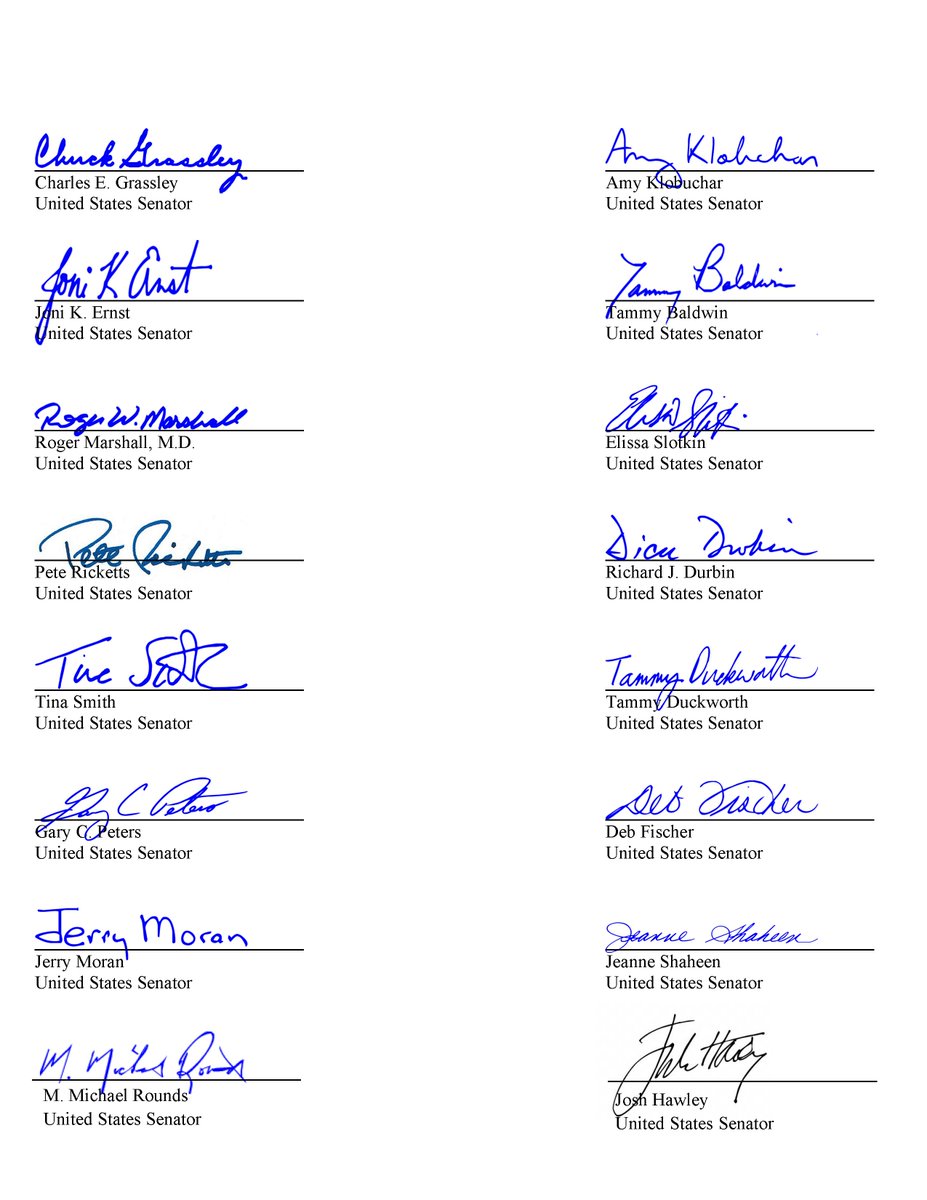 Chuck Grassley
Charles E. Grassley
United States Senator
Amy Klobuchar
Amy Klobuchar
United States Senator
Joni K Ernst
Joni K. Ernst
United States Senator
Tammy Baldwin
Tammy Baldwin
United States Senator
Roger W. Marshall
Roger Marshall, M.D.
United States Senator
Elissa Slotkin
Elissa Slotkin
United States Senator
Pete Ricketts
Pete Ricketts
United States Senator
Dick Durbin
Richard J. Durbin
United States Senator
Tina Smith
Tina Smith
United States Senator
Tammy Duckworth
Tammy Duckworth
United States Senator
Gary C Peters
Gary C. Peters
United States Senator
Deb Fischer
Deb Fischer
United States Senator
Jerry Moran
Jerry Moran
United States Senator
Jeanne Shaheen
Jeanne Shaheen
United States Senator
M. Michael Rounds
M. Michael Rounds
United States Senator
Josh Hawley
Josh Hawley
United States Senator